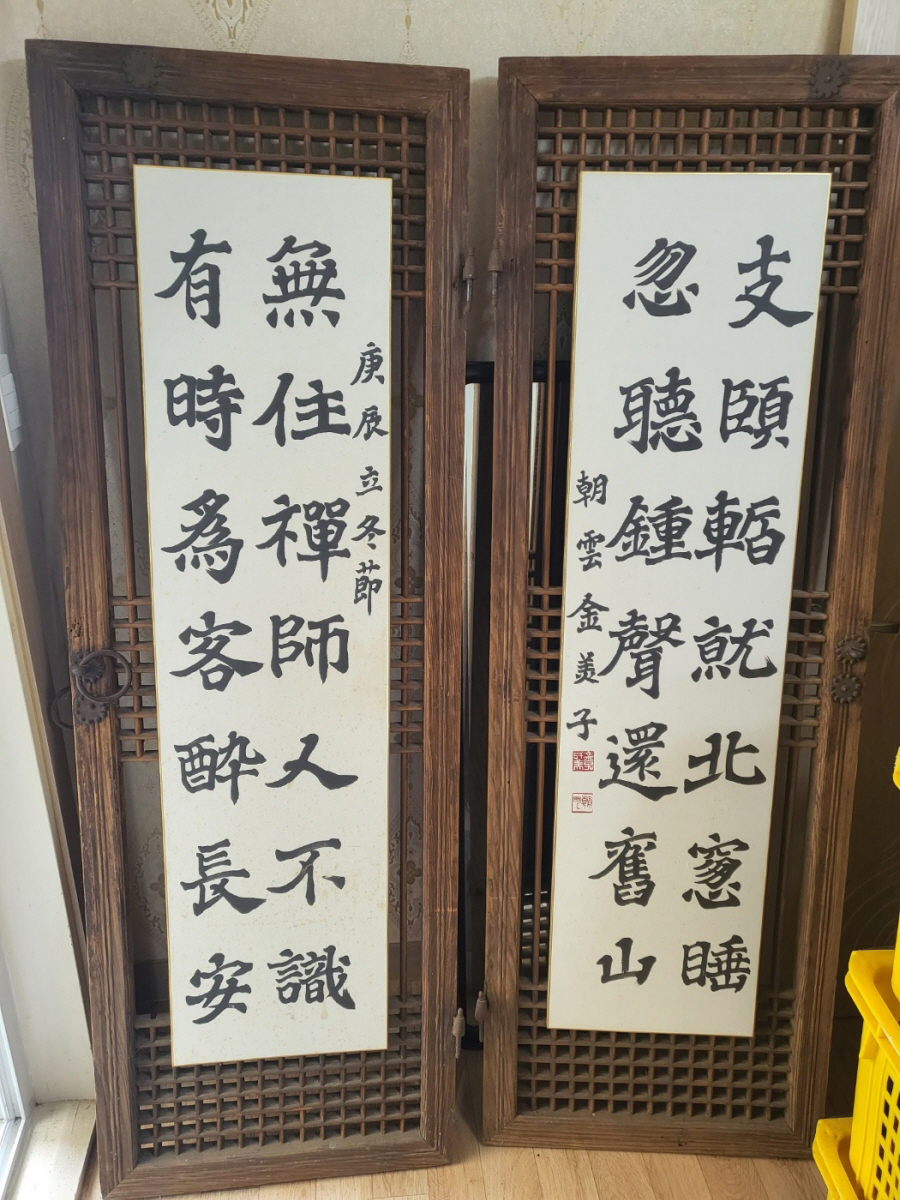 庚辰立冬節
無住禪師人不識
有時爲客醉長安
支頤暫就北窓睡
忽聽鍾聲還舊山
朝雲金美子